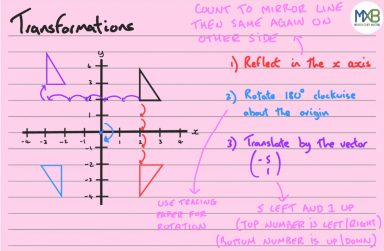 Transformations
COUNT TO MIRROR LINE
THEN SAME AGAIN ON
OTHER SIDE
MXB
1) Reflect in the x axis
2) Rotate 180° clockwise
about the origin
3) Translate by the vector
(-5
1)
y
x
4
3
2
1
-4 -3 -2 -1 1 2 3 4
-1
-2
-3
-4
USE TRACING
PAPER FOR
ROTATION
5 LEFT AND 1 UP
(TOP NUMBER IS LEFT/RIGHT)
(BOTTOM NUMBER IS UP/DOWN)